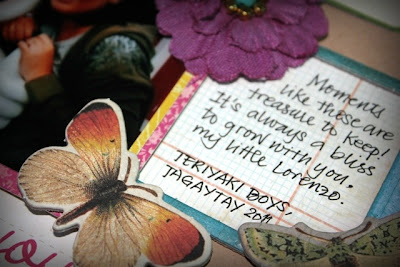 Moments
like these are
treasure to keep!
It's always a bliss
to grow with you,
my little Lorenzo.
TERIYAKI BOYS,
TAGAYTAY 2011
you